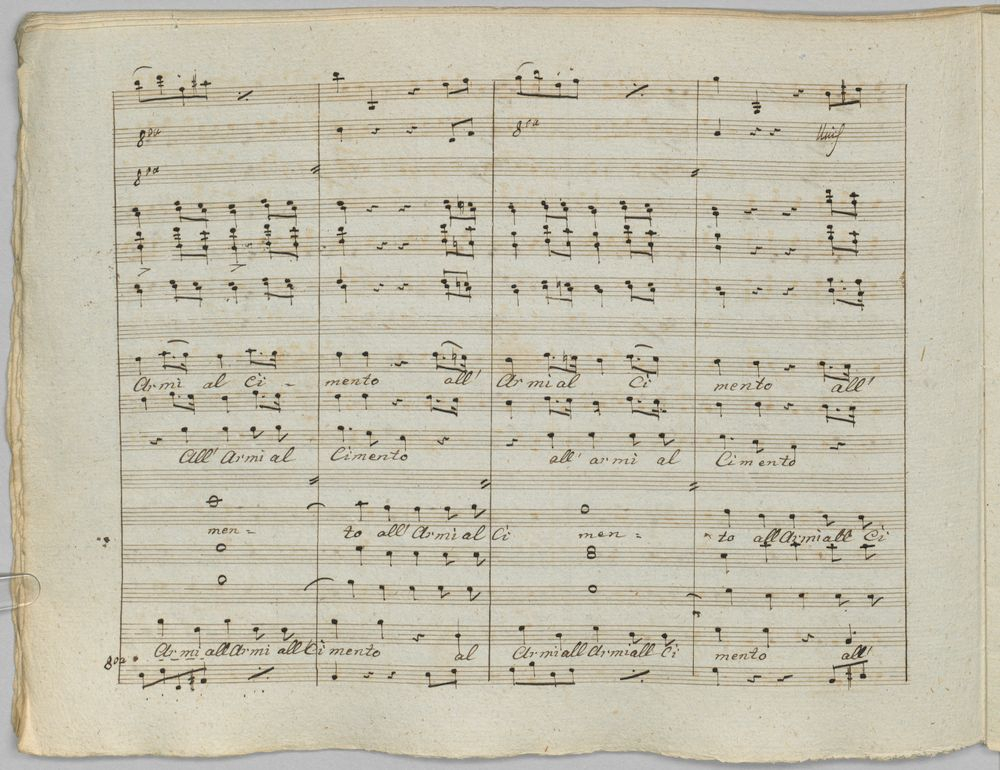 8va 8va
8va Unis
Armi al Ci - mento all' Armi al Ci mento all'
All' Armi al Cimento all' armi al Cimento
men = to all' Armi al Ci men = to all Armi all Ci
Armi all Armi all Ci mento al Armi all Armi all Ci mento all'
8va